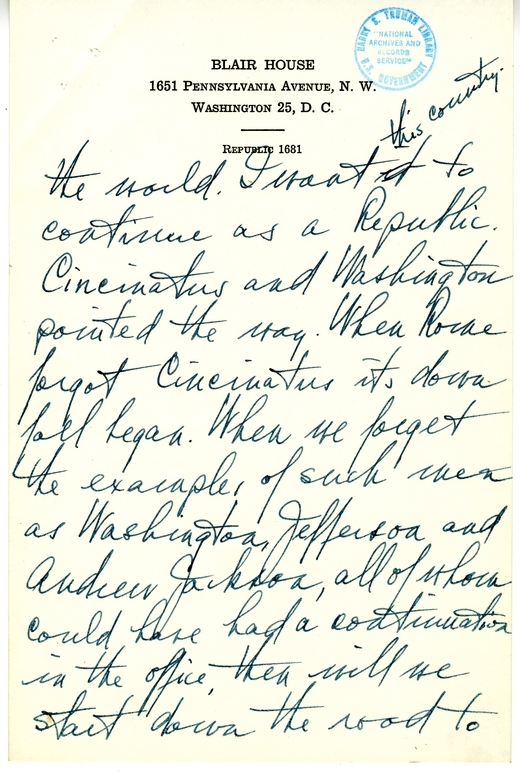 BLAIR HOUSE
1651 PENNSYLVANIA AVENUE, N. W.
WASHINGTON 25, D. C.
REPUBLIC 1681
HARRY S. TRUMAN LIBRARY
"NATIONAL
ARCHIVES AND
RECORDS
SERVICE"
U.S. GOVERNMENT
this country.
the world. I want it to
continue as a Republic.
Cincinatus and Washington
pointed the way. When Rome
forgot Cincinatus its down
fall began. When we forget
the examples of such men
as Washington, Jefferson and
Andrew Jackson, all of whom
could have had a continuation
in the office, then will we
start down the road to